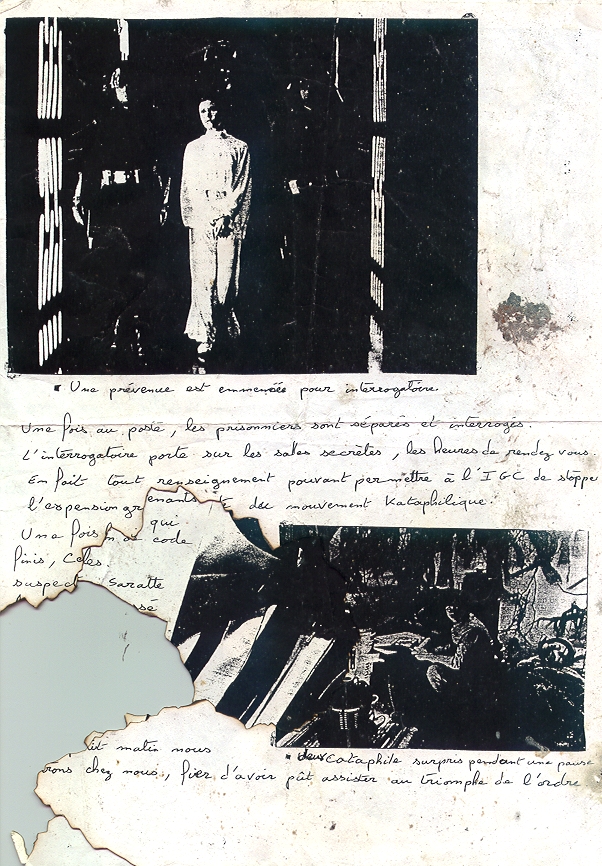 Une prévenue est emmenée pour interrogatoire.
Une fois au poste, les prisonniers sont séparés et interrogés.
L'interrogatoire porte sur les salles secrètes, les heures de rendez vous.
En fait tout renseignement pouvant permettre à l'IGC de stopper
l'espension du mouvement Kataphilique.
enants
qui
Une fois code
finis, Celes
suspect Saratte
se
matin nous
deux cataphile surpris pendant une pause
rons chez nous, fier d'avoir pût assister au triomphe de l'ordre